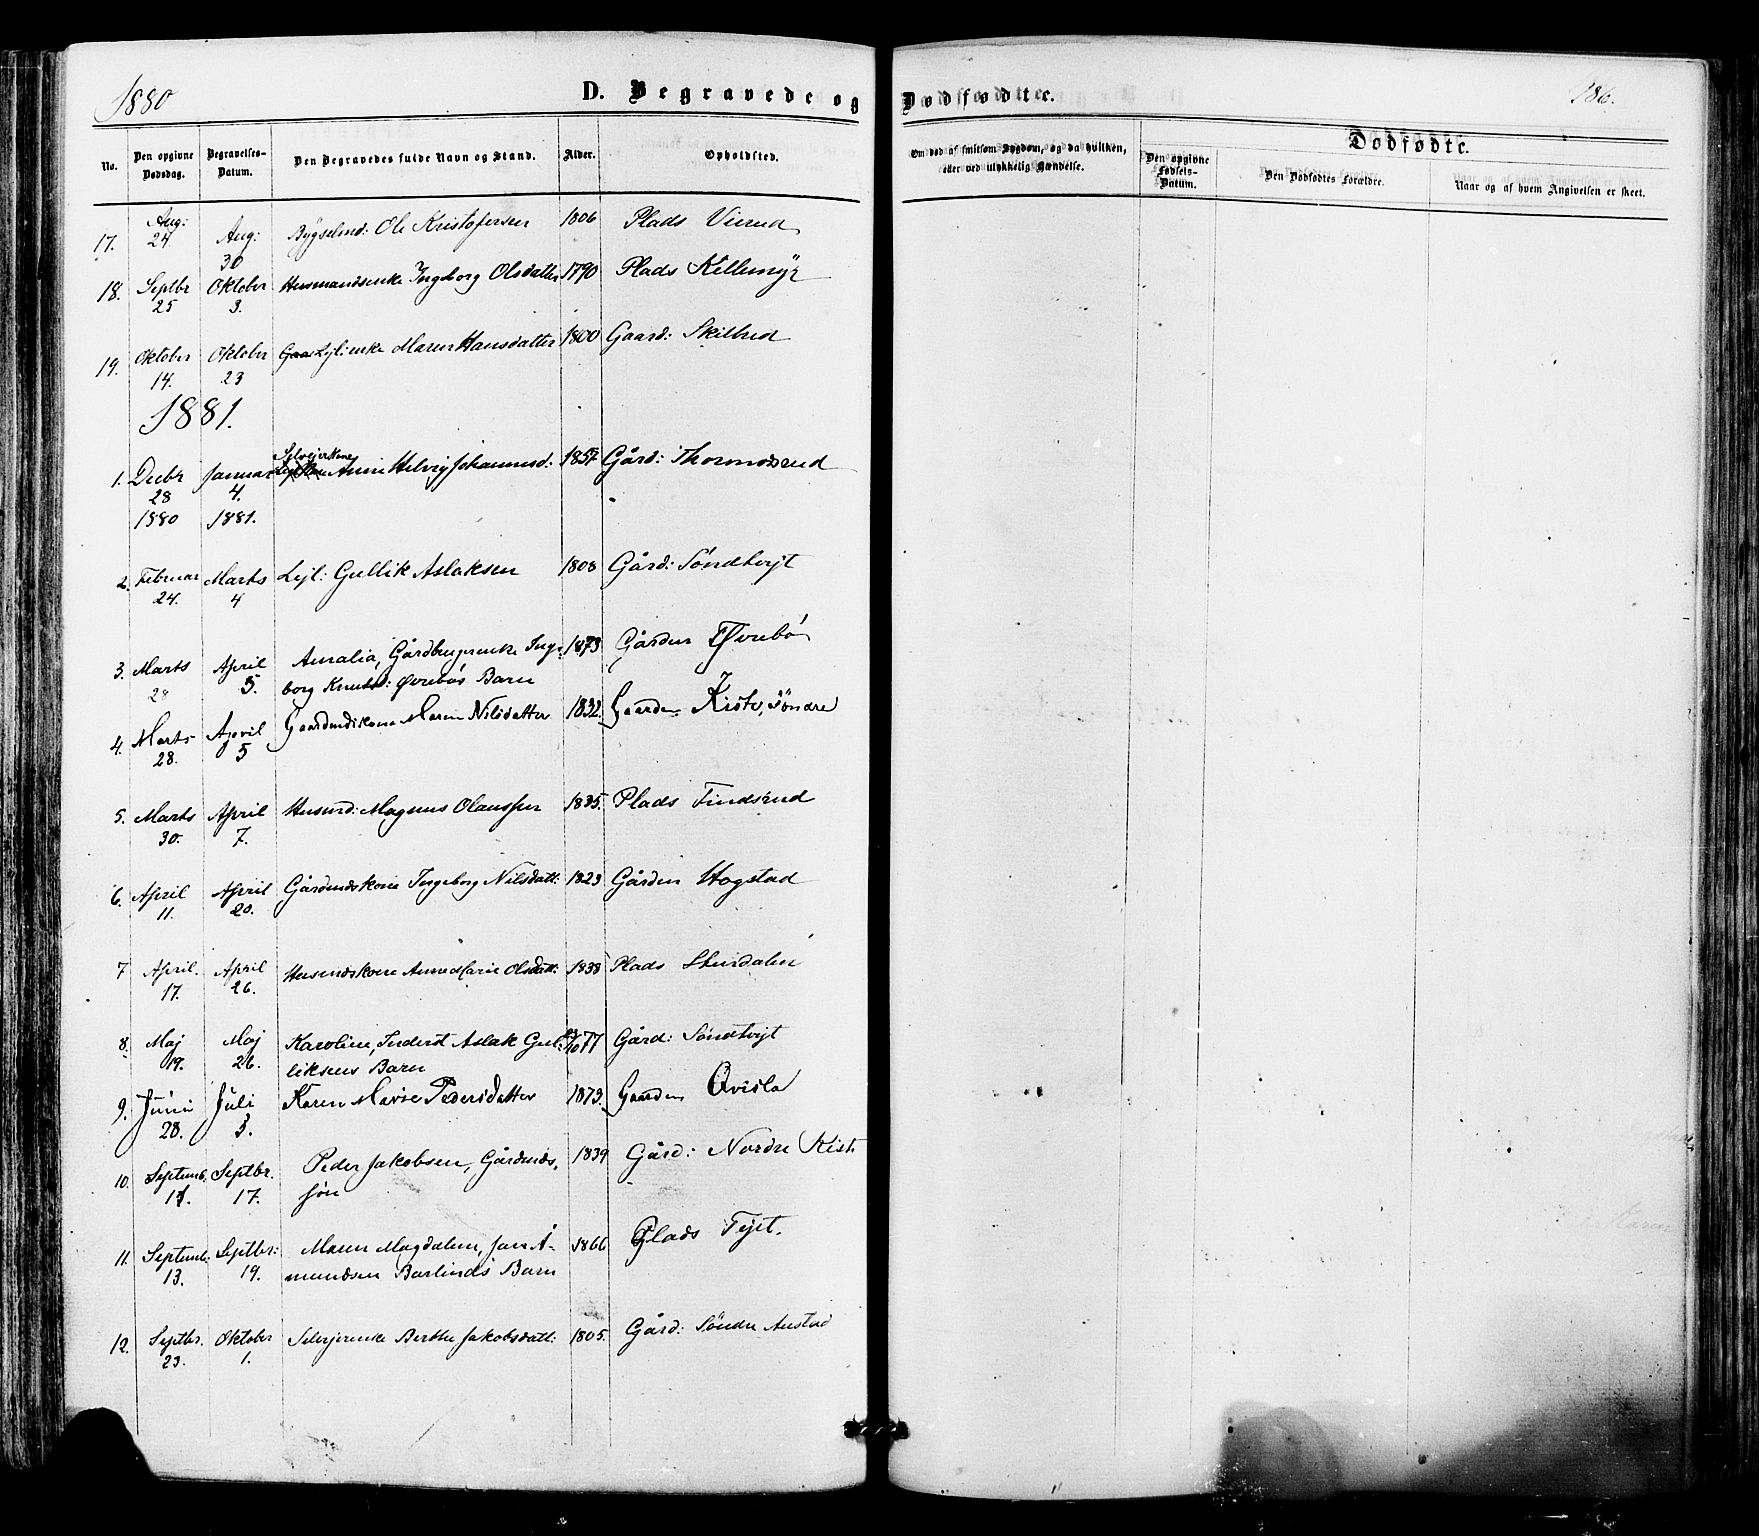 1880
D. Begravede og Dødfødte.
186.
No.
Den opgivne Dødsdag.
Begravelses-Datum.
Den Begravedes fulde Navn og Stand.
Alder.
Opholdsted.
Om død af smitsom Sygdom, og da hvilken, eller ved ulykkelig Hændelse.
Dødfødte.
Den opgivne Fødsels-Datum.
Den Dødfødtes Forældre.
Naar og af hvem Angivelsen er skeet.
17. Aug: 24 Aug: 30 Bygselmd: Ole Kristofersen 1806 Plads Vierud
18. Septbr 25 Oktober 3. Husmandsenke Ingeborg Olsdatter 1790 Plads
19. Oktober 14. Oktober 23 Lejl: enke Maren Hansdatter 1800 Gaard:
1881.
1. Decbr 28 1880 Januar 4. 1881. Selvejer Kone Anne Helvig Johannesd: 1857 Gård: Thormodsrud
2. Februar 24. Marts 4 Lejl: Gullik Aslaksen 1808 Gård: Søndtvejt
3. Marts 28 April 5. Amalia, Gårdbrugerenke Inge-
borg Knutsd: Øvrebøs Barn 1873 Gården Øvrebø
4. Marts 28. April 5 Gaardmdskone Maren Nilsdatter 1832. Gaarden Kiste, søndre
5. Marts 30. April 7. Husmd: Magnus Olaussen 1835. Plads Findsrud
6. April 11. April 20. Gårdmdskone Ingeborg Nilsdatt: 1823 Gården Hogstad
7 April. 17. April 26. Husmdskone Anne Marie Olsdatt: 1838 Plads Stensdalen
8. Maj 19. Maj Karoline, Inderst Aslak Gul-
26. liksens Barn 77 Gård: Søndtvejt
9. Juni 28. Juli 3. Karen Marie Pedersdatter 1873. Gaarden Qvisla
10. Septemb. Septbr. 17. Peder Jakobsen, Gårdmds,
søn 1839 Gård: Nordre Kiste
11. Septemb: 13. Septbr: 19. Maren Magdalene, Jan A-
mundsen Barlinds Barn 1866 Plads Tejet.
12. Septbr. 23. Oktober 1. Selvejerenke Berthe Jakobsdatt: 1805. Gård: Søndre Austad